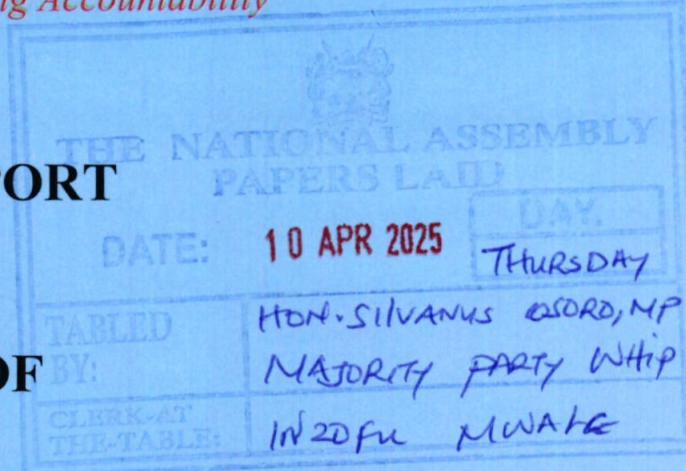 ng Accountability
THE NATIONAL ASSEMBLY
PAPERS LAID
PORT
DATE: 10 APR 2025
DAY.
THURSDAY
TABLED BY: HON. SILVANUS OSORO, MP
MAJORITY PARTY WHIP
OF
CLERK-AT THE-TABLE: INZOFU MWALE